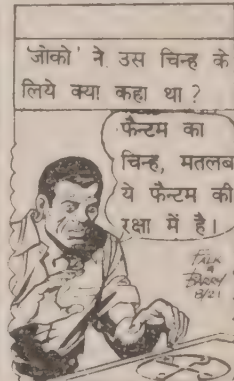 'जोको' ने उस चिन्ह के
लिये क्या कहा था ?
फैन्टम का
चिन्ह, मतलब
ये फैन्टम की
रक्षा में है।
FALK
&
BARRY